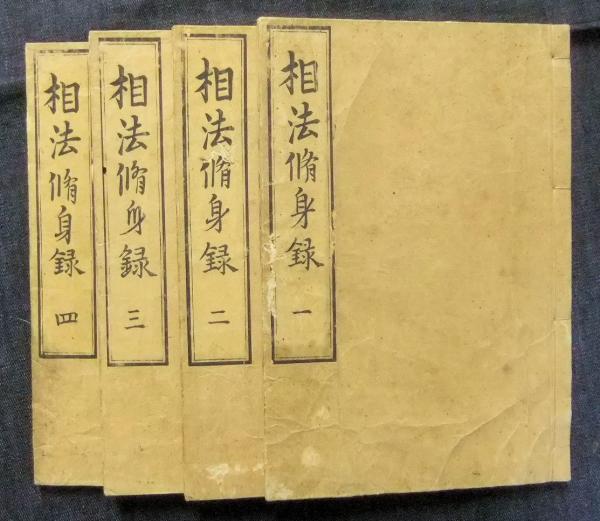 相法脩身録 一
相法脩身録 二
相法脩身録 三
相法脩身録 四